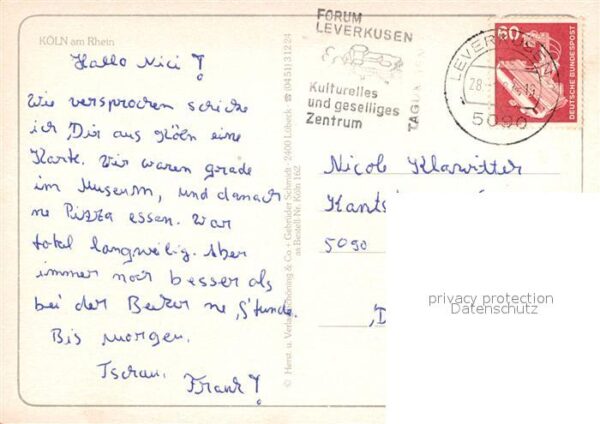 KÖLN am Rhein
Hallo Nici !
Wie versprochen schicke
ich Dir aus Köln eine
Karte. Wir waren grade
im Museum, und danach
ne Pizza essen. War
total langweilig. Aber
immer noch besser als
bei der Becker ne Stunde.
Bis morgen.
Tschau,
Frank!
© Herst. u. Verlag Schöning & Co + Gebrüder Schmidt · 2400 Lübeck ☎ (0451) 31224
Bestell-Nr. Köln 162
FORUM
LEVERKUSEN
Kulturelles
und geselliges
Zentrum
LEVERKUSEN
28
5090
60
DEUTSCHE BUNDESPOST
Nicole Klawitter
5090
privacy protection
Datenschutz